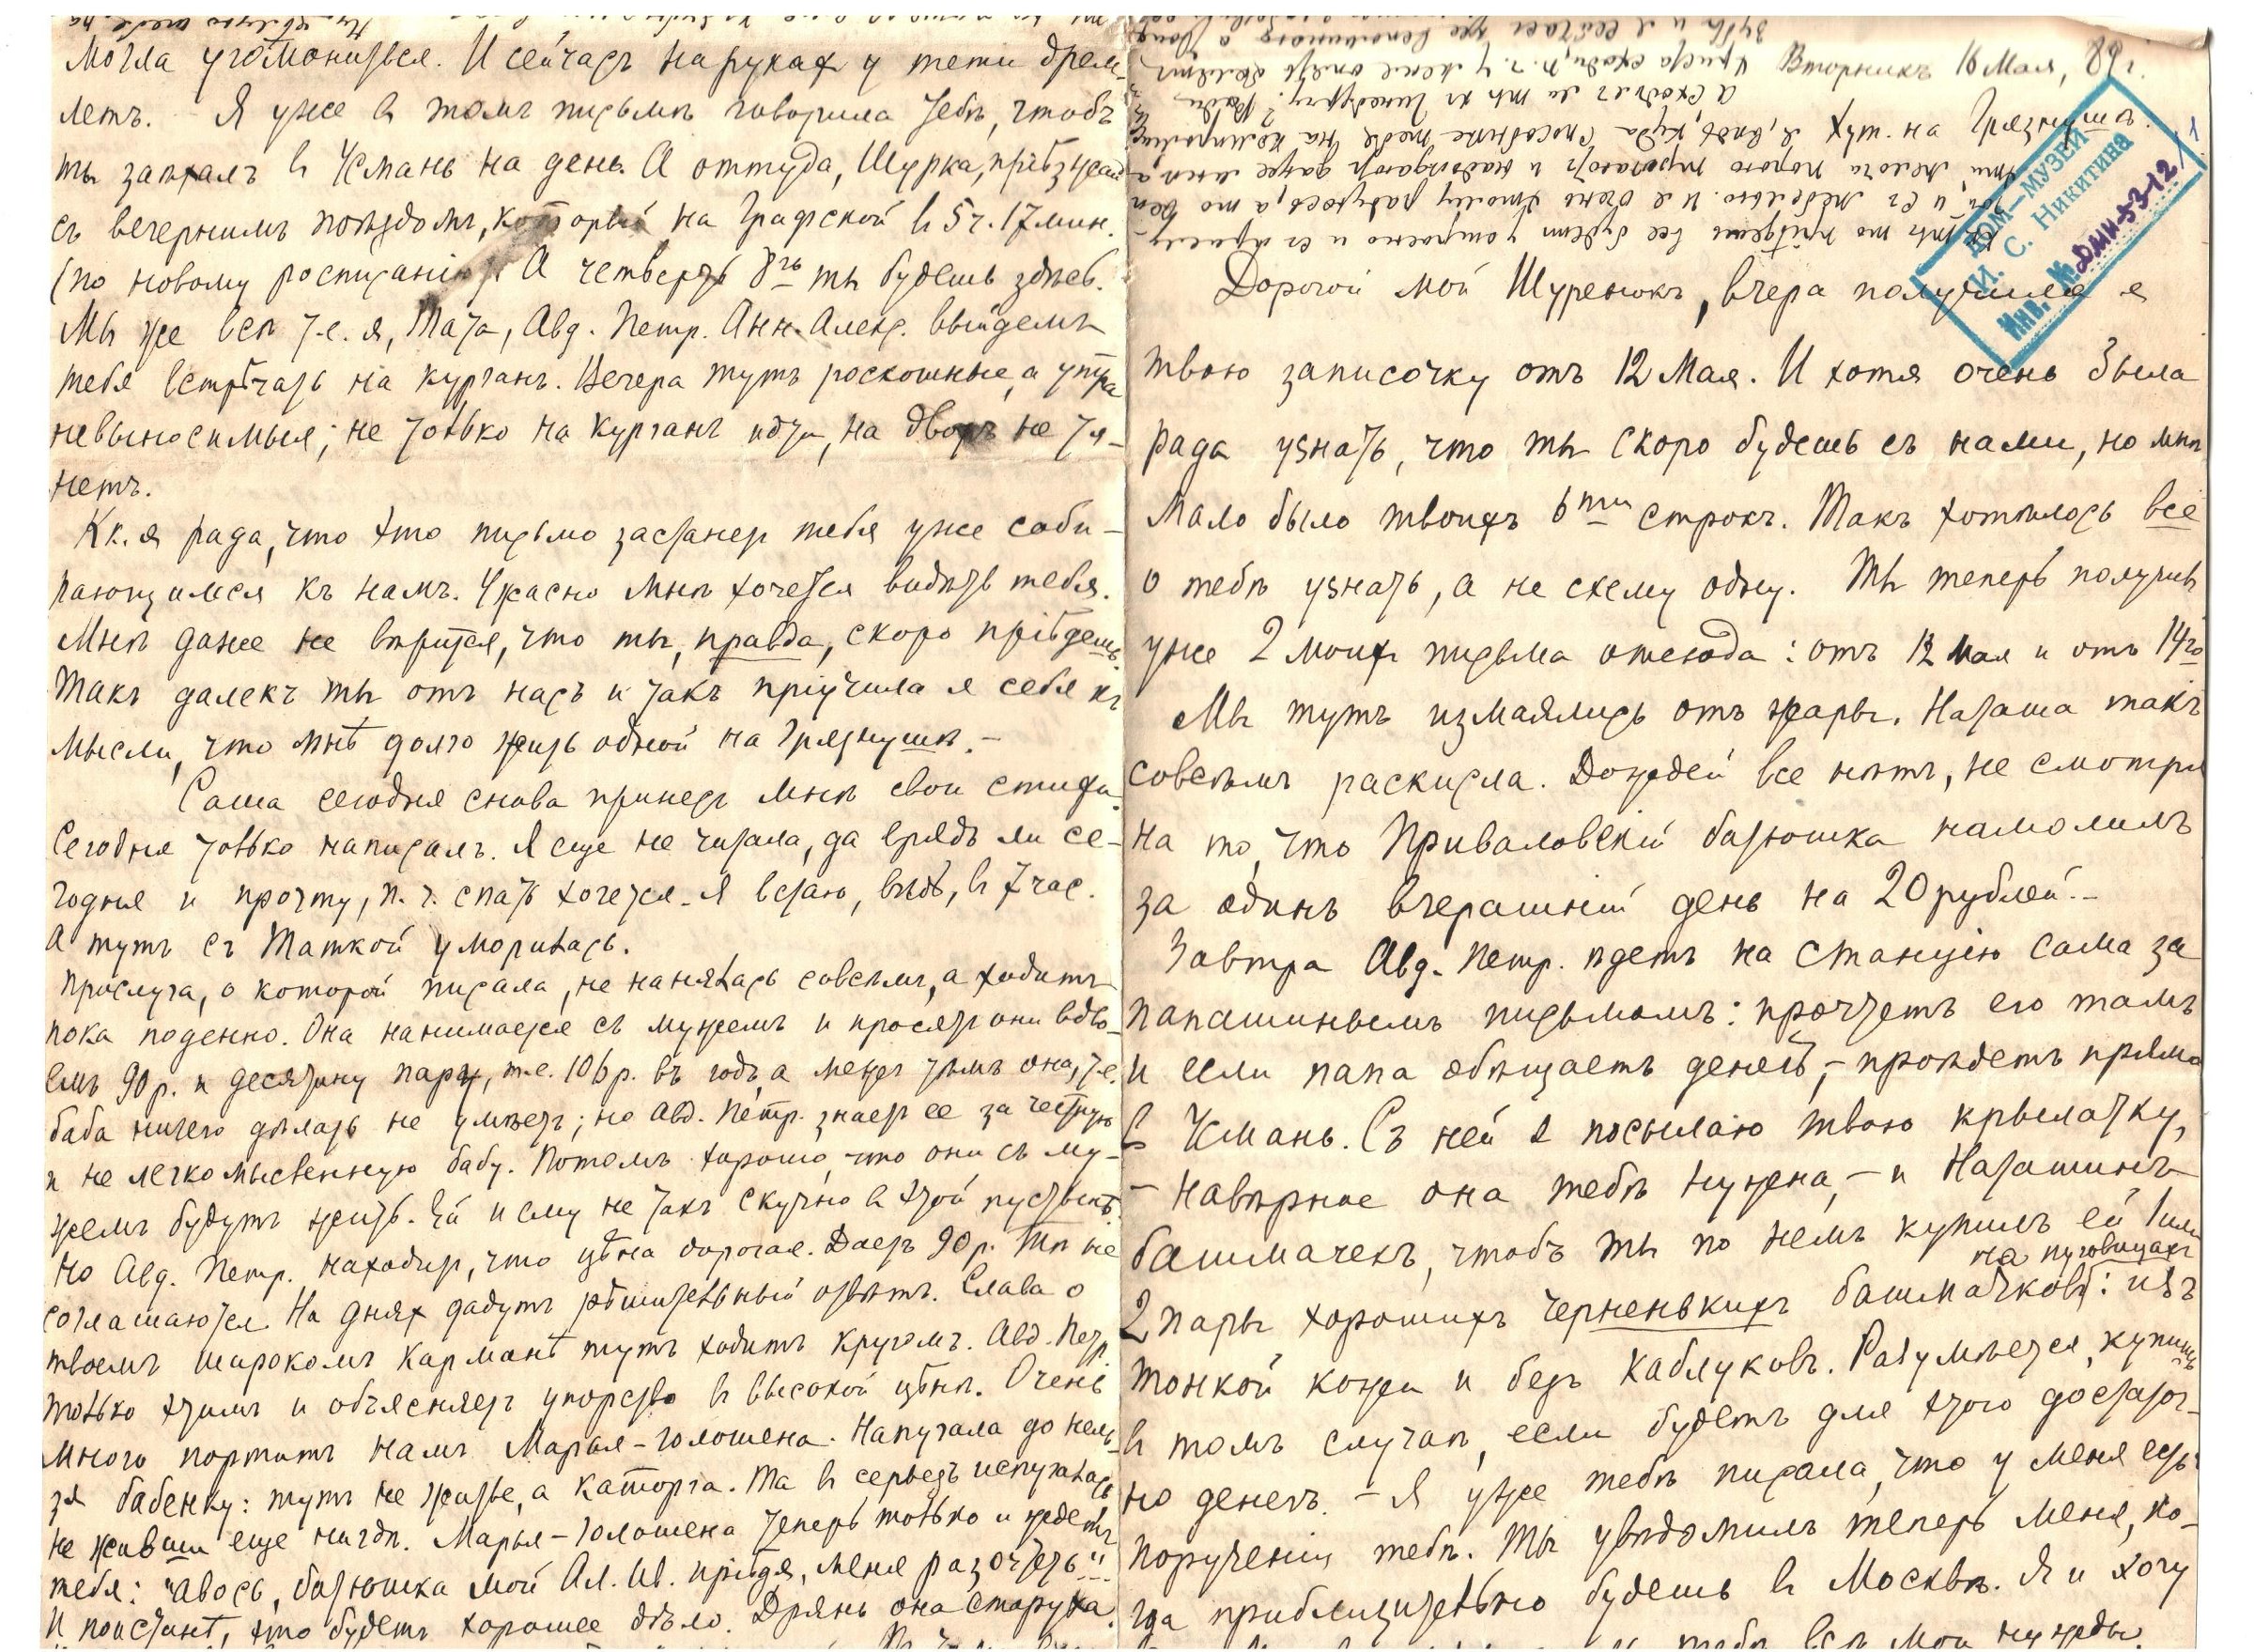 могла угомониться. И сейчасъ на рукахъ у тети дрем-
летъ. Я уже въ томъ письмѣ говорила тебѣ, чтобъ
ты заѣхалъ въ Усмань на день. А оттуда, Шурка, пріѣзжай
съ вечернимъ поѣздомъ, который на Графской въ 5 ч. 17 мин.
(по новому росписанію). А четверть 8го ты будешь здѣсь.
Мы же всѣ т.е. я, Тата, Авд. Петр. Анн. Алекс. выйдемъ
тебя встрѣчать на курганъ. Вечера тутъ роскошные, а утра
невыносимыя; не только на курганъ идти, на дворъ не тя-
нетъ.
Кк. я рада, что это письмо застанетъ тебя уже соби-
рающимся къ намъ. Ужасно мнѣ хочется видѣть тебя.
Мнѣ даже не вѣрится, что ты, правда, скоро пріѣдешь.
Такъ далекъ ты отъ насъ и такъ пріучила я себя къ
мысли, что мнѣ долго жить одной на Грязнушѣ.-
Саша сегодня снова принесъ мнѣ свои стихи.
Сегодня только написалъ. Я еще не читала, да врядъ ли се-
годня и прочту, п. ч. спать хочется. Я встаю, вѣдь, въ 7 час.
А тутъ съ Таткой уморилась.
Прислуга, о которой писала, не нанялась совсѣмъ, а ходитъ
пока поденно. Она нанимается съ мужемъ и просятъ они вдво-
емъ 90 р. и десятину пару, т.е. 106 р. въ годъ, а между тѣмъ она, т.е.
баба ничего дѣлать не умѣетъ; но Авд. Петр. знаетъ ее за честную
и не легкомысленную бабу. Потомъ хорошо, что они съ му-
жемъ будутъ жить. Ей и ему не такъ скучно въ этой пустынѣ.
Но Авд. Петр. находитъ, что цѣна дорогая. Даетъ 90 р. Тѣ не
соглашаются. На дняхъ дадутъ рѣшительный отвѣтъ. Слава о
твоемъ широкомъ карманѣ тутъ ходитъ кругомъ. Авд. Петр.
только этимъ и объясняетъ упорство въ высокой цѣнѣ. Очень
много портитъ намъ Марья-Голошена. Напугала до нель-
зя бабенку: тутъ не житье, а каторга. Та въ серьезъ испугалась
не живши еще нигдѣ. Марья-Голошена теперь только и ждетъ
тебя: "авось, батюшка мой Ал. Ив. пріѣдя, меня разочтетъ"!!
И поистинѣ, это будетъ хорошее дѣло. Дрянь она старуха.
Вторникъ 16 Мая, 89 г.
Грязнуша.
ДОМ-МУЗЕЙ
И. С. Никитина
Инв. №
пріѣдешь все будетъ устроено и съ прислу-
гой и съ мебелью. И я очень этому рада, а то всѣ
эти мелочи порою тревожатъ и надоѣдаютъ даже мнѣ, а
я, вѣдь, куда способнѣе тебя на компромис
А сходилъ ли ты къ Гинсбургу? Ради
Христа сходи, п. ч. у меня опять болятъ
зубы и я сейчасъ
Дорогой мой Шуренокъ, вчера получила я
твою записочку отъ 12 Мая. И хотя очень была
рада узнать, что ты скоро будешь съ нами, но мнѣ
мало было твоихъ 6ти строкъ. Такъ хотѣлось все
о тебѣ узнать, а не схему одну. Ты теперь получилъ
уже 2 моихъ письма отсюда: отъ 12 мая и отъ 14го
Мы тутъ измаялись отъ жары. Наташа такъ
совсѣмъ раскисла. Дождей все нѣтъ, не смотря
на то, что Приваловскій батюшка намолилъ
за одинъ вчерашній день на 20 рублей.-
Завтра Авд. Петр. ѣдетъ на станцію сама за
папашинымъ письмомъ: прочтетъ его тамъ
и если папа обѣщаетъ денегъ,- проѣдетъ прямо
въ Усмань. Съ ней я посылаю твою крылатку,
- навѣрное она тебѣ нужна,- и Наташинъ
башмачекъ, чтобъ ты по немъ купилъ ей 1 или
2 пары хорошихъ черненькихъ башмачковъ на пуговицахъ: изъ
тонкой кожи и безъ каблуковъ. Разумѣется, купишь
въ томъ случаѣ, если будетъ для этого достаточ-
но денегъ. - Я уже тебѣ писала, что у меня есть
порученія тебѣ. Ты увѣдомилъ теперь меня, ко-
гда приблизительно будешь въ Москвѣ. Я и хочу
тебѣ всѣ мои нужды.